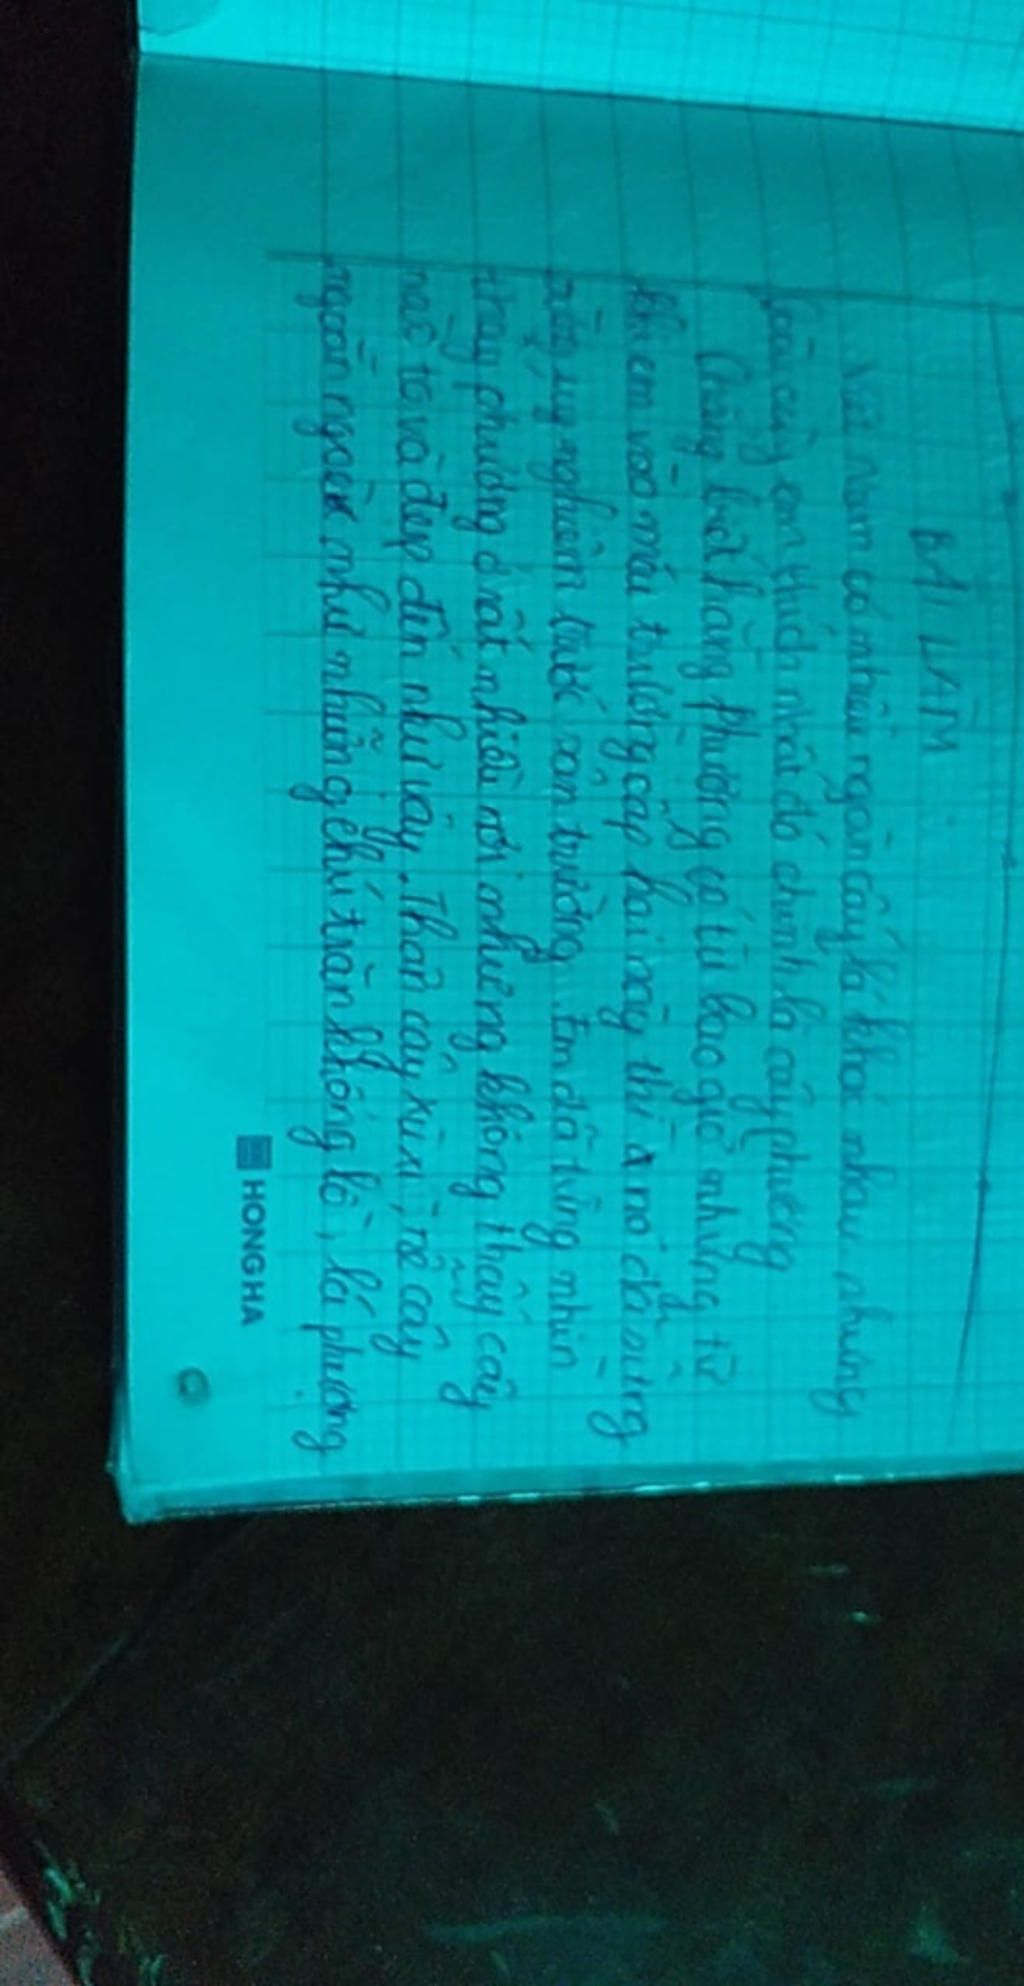 BÀI LÀM
Việt Nam có nhiều ngàn cây lá khác nhau nhưng
loài cây em thích nhất đó chính là cây phượng
Chẳng biết hàng phượng có từ bao giờ nhưng từ
khi em vào mái trường cấp hai này thì nó đã sừng
sững uy nghiêm trước sân trường. Em đã từng nhìn
thấy phượng ở rất nhiều nơi nhưng không thấy cây
nào to và đẹp đến như vậy. Thân cây xù xì, rễ cây
ngoằn ngoèo như những chú trăn khổng lồ, lá phượng
HONG HA